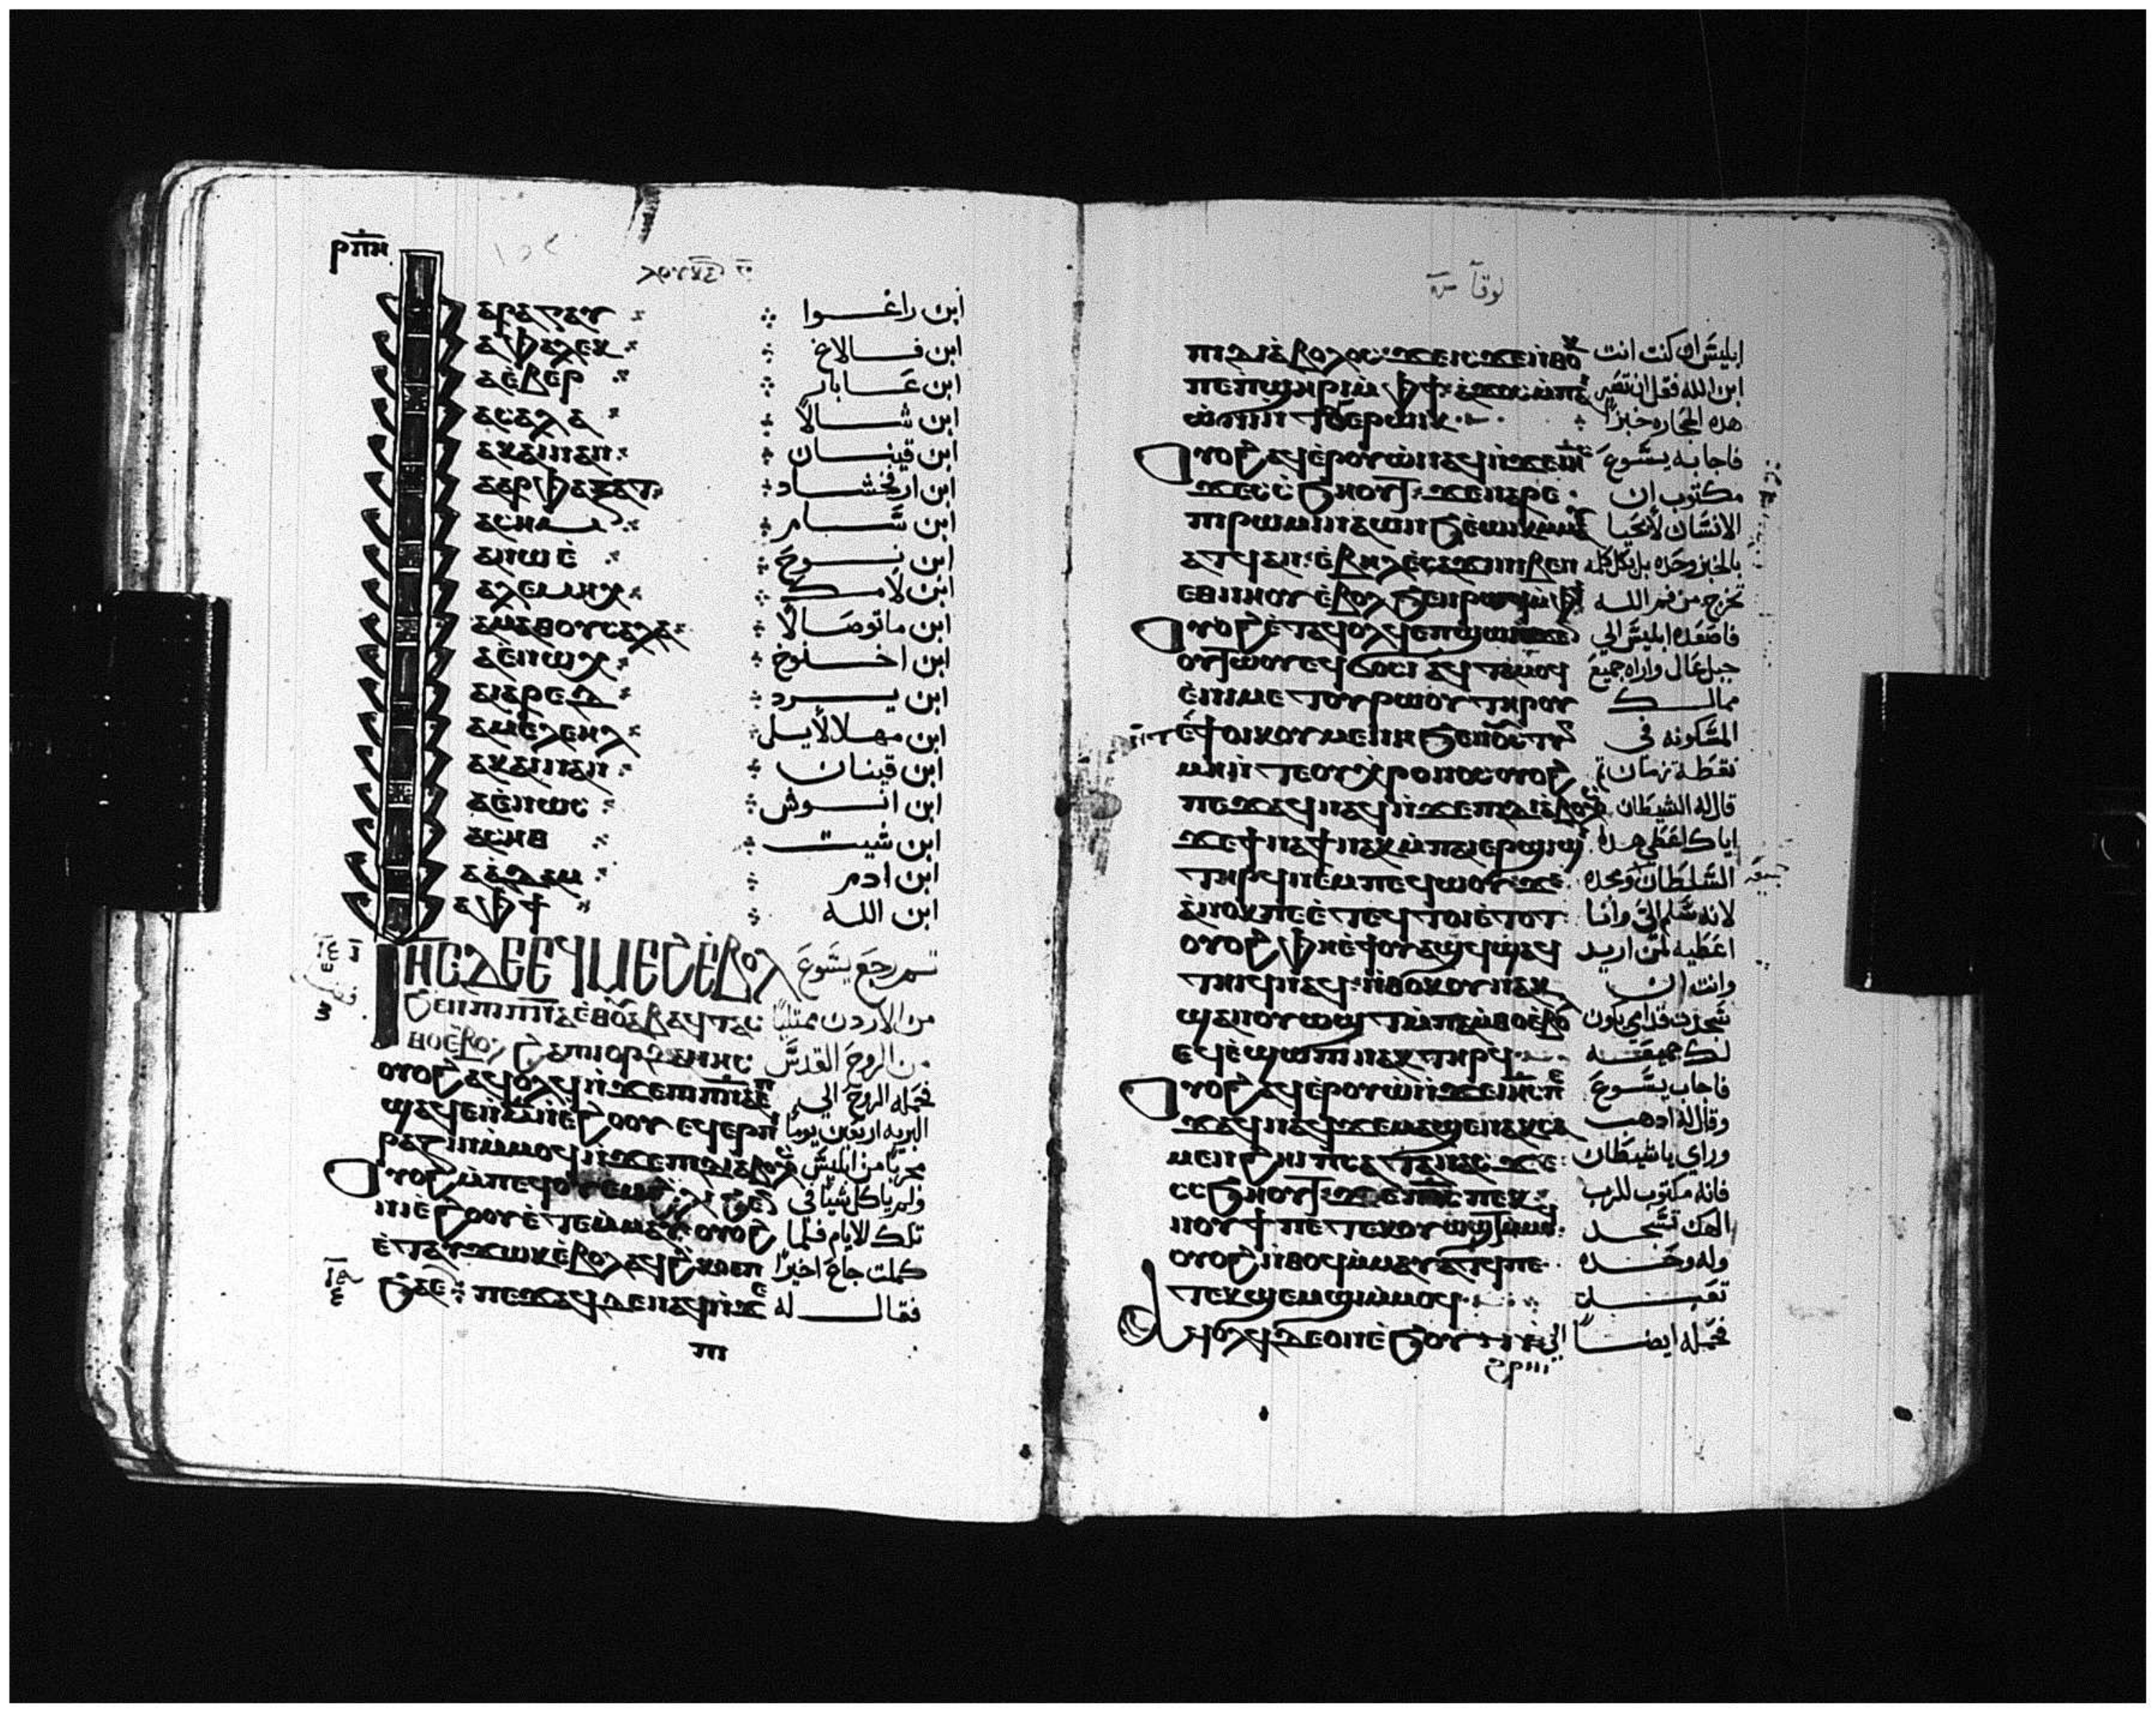 ⲣⲡⲏ
ⲁⲣⲁⲅⲁⲩ ابن راغوا
ⲁⲫⲁⲗⲉⲕ ابن فالاخ
ⲁⲉ̀ⲃⲉⲣ ابن عابار
ⲁⲥⲁⲗⲁ ابن شالا
ⲁⲕⲁⲓⲛⲁⲛ ابن قينان
ⲁⲁⲣⲫⲁⲝⲁⲧ ابن ارفخشاد
ⲁⲥⲏⲙ ابن سام
ⲁⲛⲱⲉ̀ ابن نوح
ⲁⲗⲁⲙⲉⲭ ابن لامك
ⲁⲙⲁⲑⲟⲩⲥⲁⲗⲁ ابن ماتوصالا
ⲁⲉ̀ⲛⲱⲭ ابن اخنوخ
ⲁⲓⲁⲣⲉⲇ ابن يرد
ⲁⲙⲉ̀ⲗⲉⲏⲗ ابن مهلالايل
ⲁⲕⲁⲓⲛⲁⲛ ابن قينان
ⲁⲉ̀ⲛⲱⲥ ابن انوش
ⲁⲥⲏⲑ ابن شيت
ⲁⲁ̀ⲇⲁⲙ ابن ادم
ⲁⲫϯ ابن الله
ⲓⲏⲥ ⲇⲉ ⲉϥⲙⲉϩ ⲉ̀ⲃⲟⲗ ثم رجع يشوع
من الاردن ممتليا
ⲃⲟⲗϩⲁ ⲡⲓⲟⲣⲇⲁⲛⲏⲥ من الروح القدس
ⲟⲩⲟϩ ⲁϥⲟⲗϥ ⲛ̀ϫⲉ ⲡⲓⲡⲛⲁ فحمله الروح الى
ϣⲁϥⲉ ⲛ̀ⲙ̅ ⲛ̀ⲉϩⲟⲟⲩ ⲉⲩⲉⲣⲡⲓ البريه اربعين يوما
ⲣⲁⲍⲓⲛ ⲙ̀ⲙⲟϥ ⲛ̀ϫⲉ ⲡⲓⲇⲓⲁⲃⲟⲗ مجربا من ابليس
ⲟⲩⲟϩ ⲙ̀ⲡⲉϥⲟⲩⲉⲙ ولم ياكل شيا في
ⲛⲓⲉ̀ϩⲟⲟⲩ ⲉ̀ⲧⲉⲙ̀ⲙⲁⲩ ⲟⲩⲟϩ تلك الايام فلما
ⲉ̀ⲧⲁⲩϫⲱⲕ ⲉ̀ⲃⲟⲗ ⲁϥϩ̀ⲕⲟ ⲉⲡ كملت جاع اخيرا
ϧⲁⲉ̀ ⲡⲉϫⲁϥ ⲇⲉ ⲛⲁϥ ⲛ̀ϫⲉ فقال له
ⲡⲓ
لوقا
ⲡⲓⲇⲓⲁ̀ⲃⲟⲗⲟⲥ ϫⲉ ⲓⲥϫⲉ ⲛ̀ⲑⲟⲕ ابليس ان كنت انت
ⲡⲉ ⲡϣⲏⲣⲓ ⲙ̀ⲫϯ ⲁ̀ϫⲟⲥ ابن الله فقل ان تصير
هذه الحجاره خبزا
ⲟⲩⲟϩ ⲁϥⲉ̀ⲣⲟⲩⲱ̀ ⲛⲁϥ ⲛ̀ϫⲉ ⲓⲏⲥ فاجابه يسوع
ϫⲉ ⲥ̀ⲥ̀ϧⲏⲟⲩⲧ ϫⲉ ⲛⲁⲣⲉ مكتوب ان
ⲡⲓⲣⲱⲙⲓ ⲛⲁⲱⲛϧ ⲉ̀ⲱⲓⲕ ⲙ̀ⲙⲁ الانسان لا يحيا
ⲁⲧϥ ⲁⲛ ⲉ̀ⲃⲏⲗ ⲉ̀ⲥⲁϫⲓ ⲛⲓⲃⲉⲛ بالخبز وحده بل بكل كلمه
ⲉⲑⲛⲏⲟⲩ ⲉ̀ⲃⲟⲗ ϧⲉⲛ ⲣⲱϥ ⲙ̀ⲫϯ تخرج من فم الله
ⲟⲩⲟϩ ⲉ̀ⲧⲁϥⲟⲗϥ ⲉⲡϣⲱⲓ ⲉϫⲉⲛ فاصعده ابليس الى
ⲟⲩⲧⲱⲟⲩ ⲉϥϭⲟⲥⲓ ⲁϥⲧⲁⲙⲟϥ جبل عال واراه جميع
ⲉ̀ⲛⲓⲙⲉⲧⲟⲩⲣⲱⲟⲩ ⲧⲏⲣⲟⲩ ممالك
ⲛ̀ⲧⲉ ϯⲟⲓⲕⲟⲩⲙⲉⲛⲏ ϧⲉⲛ ⲟⲩⲥⲧⲩ المسكونه فى
ⲙⲏ ⲛ̀ⲧⲉ ⲟⲩⲭⲣⲟⲛⲟⲥ ⲟⲩⲟϩ نقطة زمان ثم
ⲡⲉϫⲁϥ ⲛⲁϥ ⲛ̀ϫⲉ ⲡⲓⲇⲓⲁ̀ⲃⲟⲗ قال له الشيطان
ϫⲉ ϯⲛⲁϯ ⲛⲁⲕ ⲙ̀ⲡⲁⲓⲉⲣϣⲓϣⲓ اياك اعطى هذا
ⲧⲏⲣϥ ⲛⲉⲙ ⲡⲉϥⲱⲟⲩ ϫⲉ السلطان ومجده
ⲁ̀ⲛⲟⲕ ⲡⲉ ⲉ̀ⲧⲉϥⲧⲟⲓ ⲉ̀ⲧⲟⲧ لانه سلم الى وانا
ⲟⲩⲟϩ ⲫⲏ ⲉ̀ϯⲟⲩⲁϣϥ ϣⲁϥ اعطيه لمن اريد
ⲧⲏⲓϥ ⲛⲁϥ ⲛ̀ⲑⲟⲕ ⲟⲩⲛ ⲁⲕ وانت ان
ϣⲁⲛⲟⲩⲱϣⲧ ⲙ̀ⲡⲁⲙ̀ⲑⲟ ⲉ̀ⲃⲟⲗ سجدت قدامي يكون
ⲉϥⲉ̀ϣⲱⲡⲓ ⲛⲁⲕ ⲧⲏⲣϥ لك جميعه
ⲟⲩⲟϩ ⲁϥⲉ̀ⲣⲟⲩⲱ̀ ⲛ̀ϫⲉ ⲓⲏⲥ ⲡⲉ فاجاب يسوع
ϫⲁϥ ⲛⲁϥ ϫⲉ ⲙⲁϣⲉⲛⲁⲕ ⲥⲁ وقال له اذهب
ⲙⲉⲛϩⲏⲓ ⲡⲥⲁⲧⲁⲛⲁⲥ ϫⲉ وراي يا شيطان
ⲥⲥϧⲏⲟⲩⲧ ϫⲉ ⲡϭⲥ ⲡⲉⲕ فانه مكتوب للرب
ⲛⲟⲩϯ ⲡⲉⲧⲉⲕⲟⲩⲱϣⲧ ⲙ̀ⲙⲟϥ الهك تسجد
ⲟⲩⲟϩ ⲛ̀ⲑⲟϥ ⲙ̀ⲙⲁⲩⲁⲧϥ ⲡⲉ وله وحده
ⲧⲉⲕϣⲉⲙϣⲓ ⲙ̀ⲙⲟϥ تعبد
ⲁϥⲟⲗϥ ⲇⲉ ⲟⲛ ⲉ̀ϧⲟⲩⲛ فحمله ايضا الى